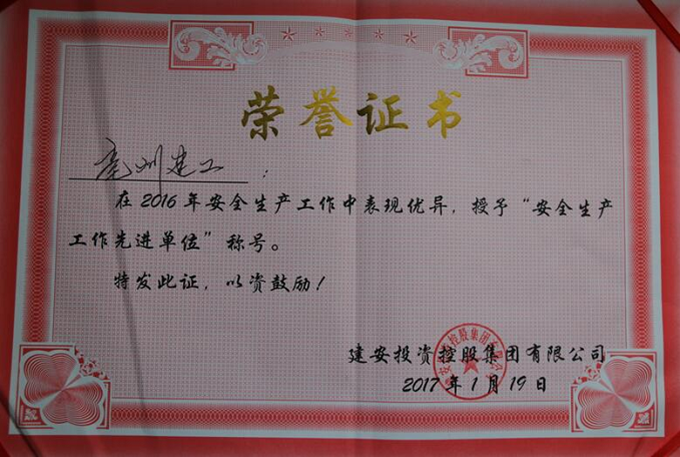 荣誉证书
亳州建工：
在2016年安全生产工作中表现优异，授予“安全生产
工作先进单位”称号。
特发此证，以资鼓励！
建安投资控股集团有限公司
2017年1月19日